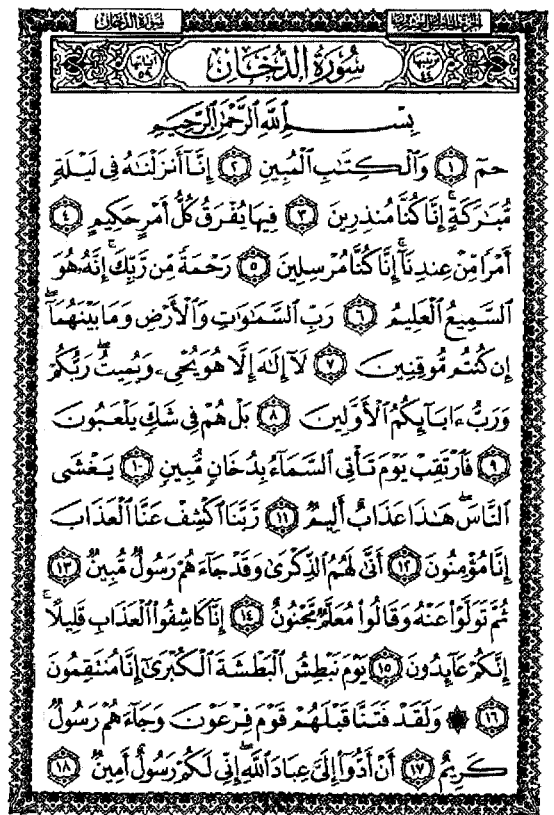 سورة الدخان الجزء الخامس والعشرون
ترتيبها ٤٤ سُورَةُ الدُّخَان آياتها ٥٩
بِسْمِ اللَّهِ الرَّحْمَٰنِ الرَّحِيمِ
حمٓ ١ وَٱلْكِتَٰبِ ٱلْمُبِينِ ٢ إِنَّآ أَنزَلْنَٰهُ فِى لَيْلَةٍ
مُّبَٰرَكَةٍ ۚ إِنَّا كُنَّا مُنذِرِينَ ٣ فِيهَا يُفْرَقُ كُلُّ أَمْرٍ حَكِيمٍ ٤
أَمْرًا مِّنْ عِندِنَآ ۚ إِنَّا كُنَّا مُرْسِلِينَ ٥ رَحْمَةً مِّن رَّبِّكَ ۚ إِنَّهُۥ هُوَ
ٱلسَّمِيعُ ٱلْعَلِيمُ ٦ رَبِّ ٱلسَّمَٰوَٰتِ وَٱلْأَرْضِ وَمَا بَيْنَهُمَآ ۖ
إِن كُنتُم مُّوقِنِينَ ٧ لَآ إِلَٰهَ إِلَّا هُوَ يُحْىِۦ وَيُمِيتُ ۖ رَبُّكُمْ
وَرَبُّ ءَابَآئِكُمُ ٱلْأَوَّلِينَ ٨ بَلْ هُمْ فِى شَكٍّ يَلْعَبُونَ
٩ فَٱرْتَقِبْ يَوْمَ تَأْتِى ٱلسَّمَآءُ بِدُخَانٍ مُّبِينٍ ١٠ يَغْشَى
ٱلنَّاسَ ۖ هَٰذَا عَذَابٌ أَلِيمٌ ١١ رَّبَّنَا ٱكْشِفْ عَنَّا ٱلْعَذَابَ
إِنَّا مُؤْمِنُونَ ١٢ أَنَّىٰ لَهُمُ ٱلذِّكْرَىٰ وَقَدْ جَآءَهُمْ رَسُولٌ مُّبِينٌ ١٣
ثُمَّ تَوَلَّوْا۟ عَنْهُ وَقَالُوا۟ مُعَلَّمٌ مَّجْنُونٌ ١٤ إِنَّا كَاشِفُوا۟ ٱلْعَذَابِ قَلِيلًا ۚ
إِنَّكُمْ عَآئِدُونَ ١٥ يَوْمَ نَبْطِشُ ٱلْبَطْشَةَ ٱلْكُبْرَىٰٓ إِنَّا مُنتَقِمُونَ
١٦ ۞ وَلَقَدْ فَتَنَّا قَبْلَهُمْ قَوْمَ فِرْعَوْنَ وَجَآءَهُمْ رَسُولٌ
كَرِيمٌ ١٧ أَنْ أَدُّوٓا۟ إِلَىَّ عِبَادَ ٱللَّهِ ۖ إِنِّى لَكُمْ رَسُولٌ أَمِينٌ ١٨